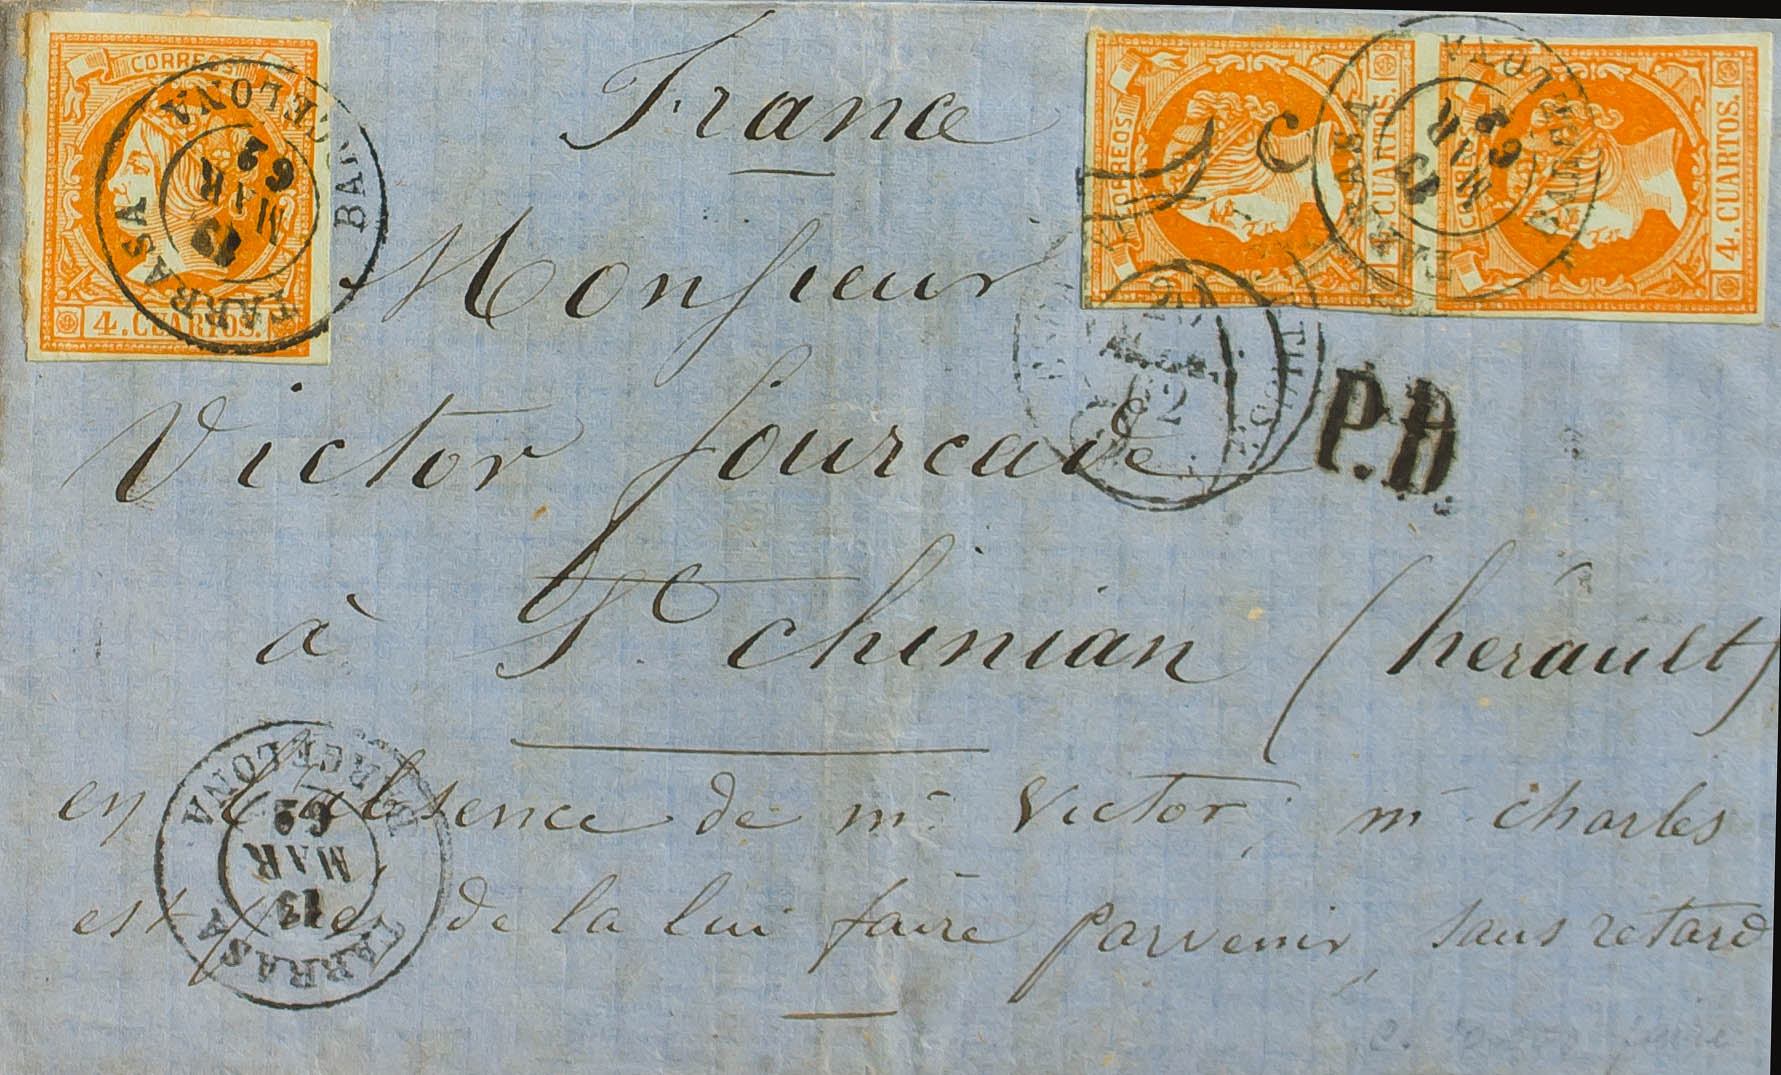 CORREOS
4. CUARTOS.
TARRASA BARCELONA
13
MAR
62
France
CORREOS
4. CUARTOS.
4. CUARTOS.
TARRASA BARCELONA
13
MAR
62
Monsieur
Victor fourcade
62
P.D.
à St. chinian (hérault)
en l'absence de mr Victor, mr charles
est prié de la lui faire parvenir, sans retard
TARRASA BARCELONA
13
MAR
62